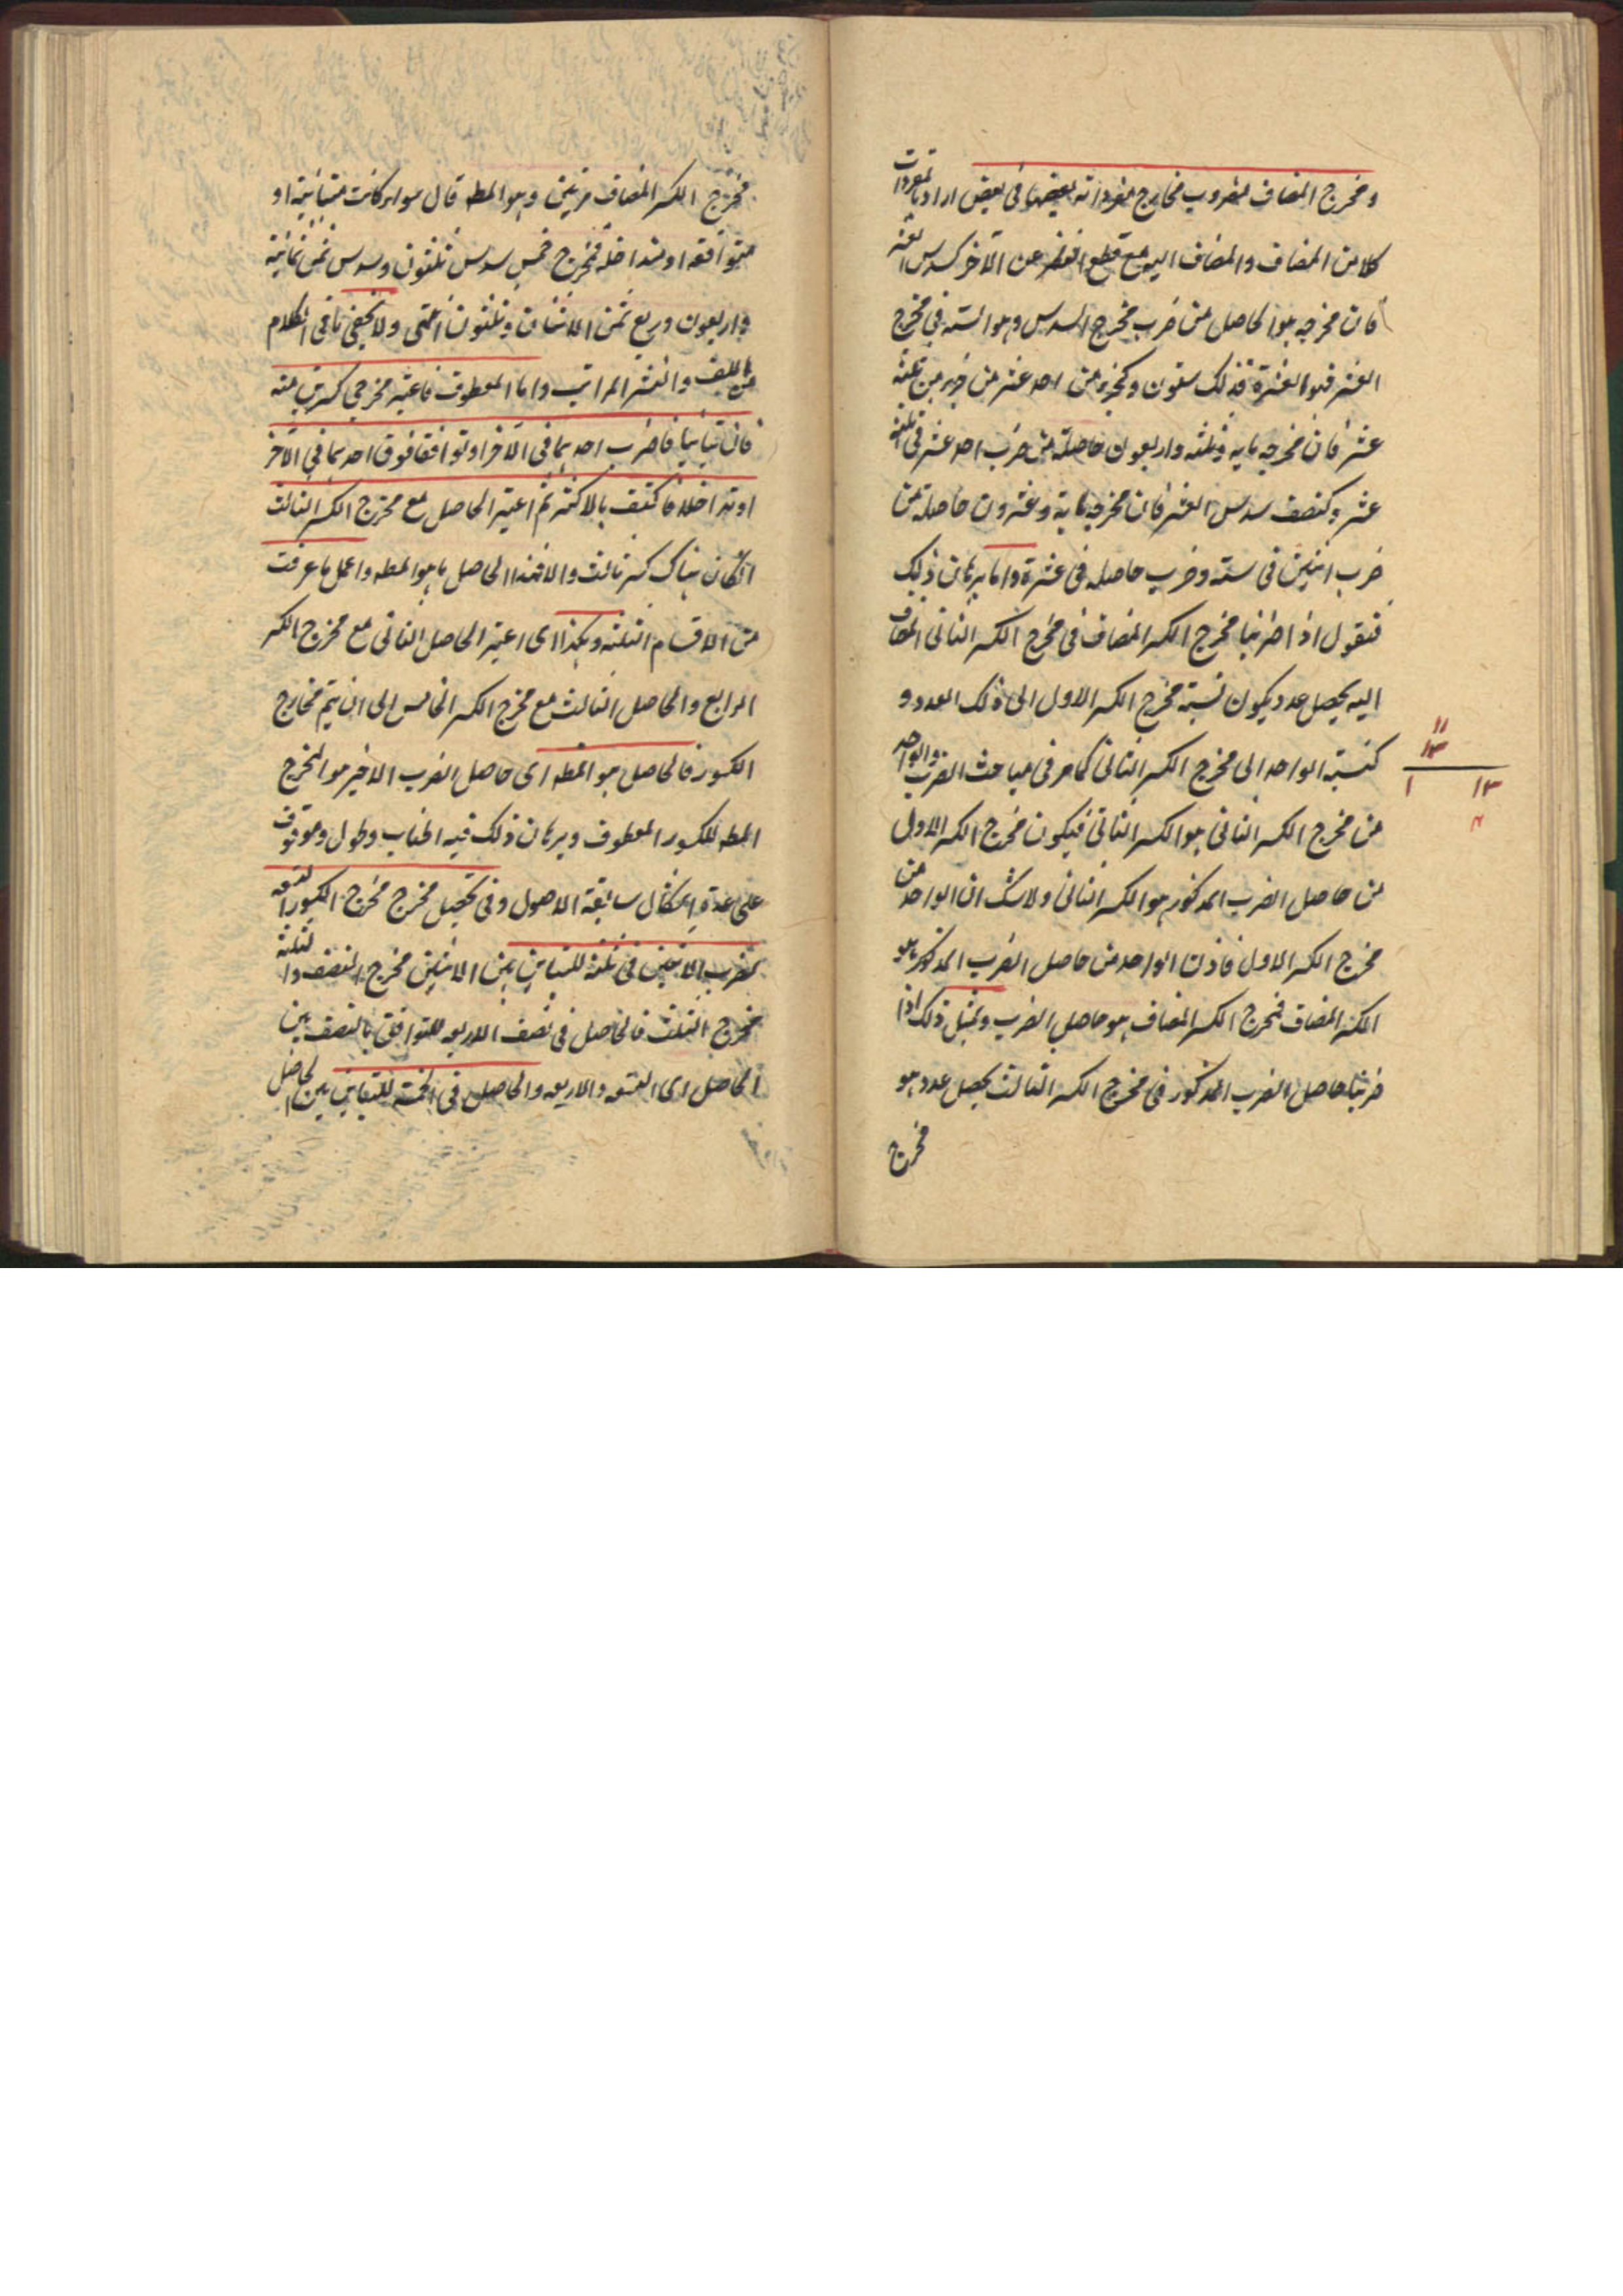 ومخرج المضاف مضروب مخارج مفرداته بعضها فى بعض اراد بالمفردات
كلا من المضاف والمضاف اليه مع قطع النظر عن الآخر كسدس العشر
فان مخرجه هو الحاصل من ضرب مخرج السدس وهو الستة فى مخرج
العشر وهو العشرة فذلك ستون وكجزء من احد عشر من جزء من ثلثة
عشر فان مخرجه مايه وثلثه واربعون حاصلة من ضرب احد عشر فى ثلثة
عشر وكنصف سدس العشر فان مخرجه مايه وعشرون حاصلة من
ضرب اثنين فى ستة وضرب حاصله فى عشرة واما برهان ذلك
فنقول اذا ضربنا مخرج الكسر المضاف فى مخرج الكسر الثانى المضاف
اليه يحصل عدد يكون نسبة مخرج الكسر الاول الى ذلك العدد و
كنسبة الواحد الى مخرج الكسر الثانى كما مر فى مباحث الضرب والواحد
من مخرج الكسر الثانى هو الكسر الثانى فيكون مخرج الكسر الاول
من حاصل الضرب المذكور هو الكسر الثانى ولا شك ان الواحد من
مخرج الكسر الاول فاذن الواحد من حاصل الضرب المذكور هو
الكسر المضاف فمخرج الكسر المضاف هو حاصل الضرب وبمثل ذلك اذا
ضربنا حاصل الضرب المذكور فى مخرج الكسر الثالث يحصل عدد هو
مخرج
١١
١٣
١ ١٣
مخرج الكسر المضاف مرتين وهو المطه قال سواء كانت متباينة او
متوافقة او متداخلة فمخرج خمس سدس ثلثون وسدس ثمن ثمانية
واربعون وربع ثمن اثنان وثلثون انتهى ولا يخفى ما فى الكلام
من اللف والنشر المراتب واما المعطوف فاعتبر مخرجى كسرين منه
فان تباينا فاضرب احدهما فى الآخر او توافقا فوق احدهما فى الآخر
او تداخلا فاكتف بالاكثر ثم اعتبر الحاصل مع مخرج الكسر الثالث
ان كان هناك كسر ثالث والا فهذا الحاصل ما هو المطه واعمل ما عرفت
من الاقسام الثلثة وهكذا اى اعتبر الحاصل الثانى مع مخرج الكسر
الرابع والحاصل الثالث مع مخرج الكسر الخامس الى ان يتم مخارج
الكسور فالحاصل هو المطه اى حاصل الضرب الاخير هو المخرج
المطه للكسور المعطوف وبرهان ذلك فيه اطناب وطول وموقوف
على عدة اشكال سابقة الاصول وفى تحصيل مخرج الكسور التسعة
تضرب الاثنين فى ثلثة للتباين بين الاثنين مخرج النصف والثلثة
مخرج الثلث فالحاصل فى نصف الاربعه للتوافق بالنصف بين
الحاصل اى الستة والاربعه والحاصل فى الخمسة للتباين بين الحاصل